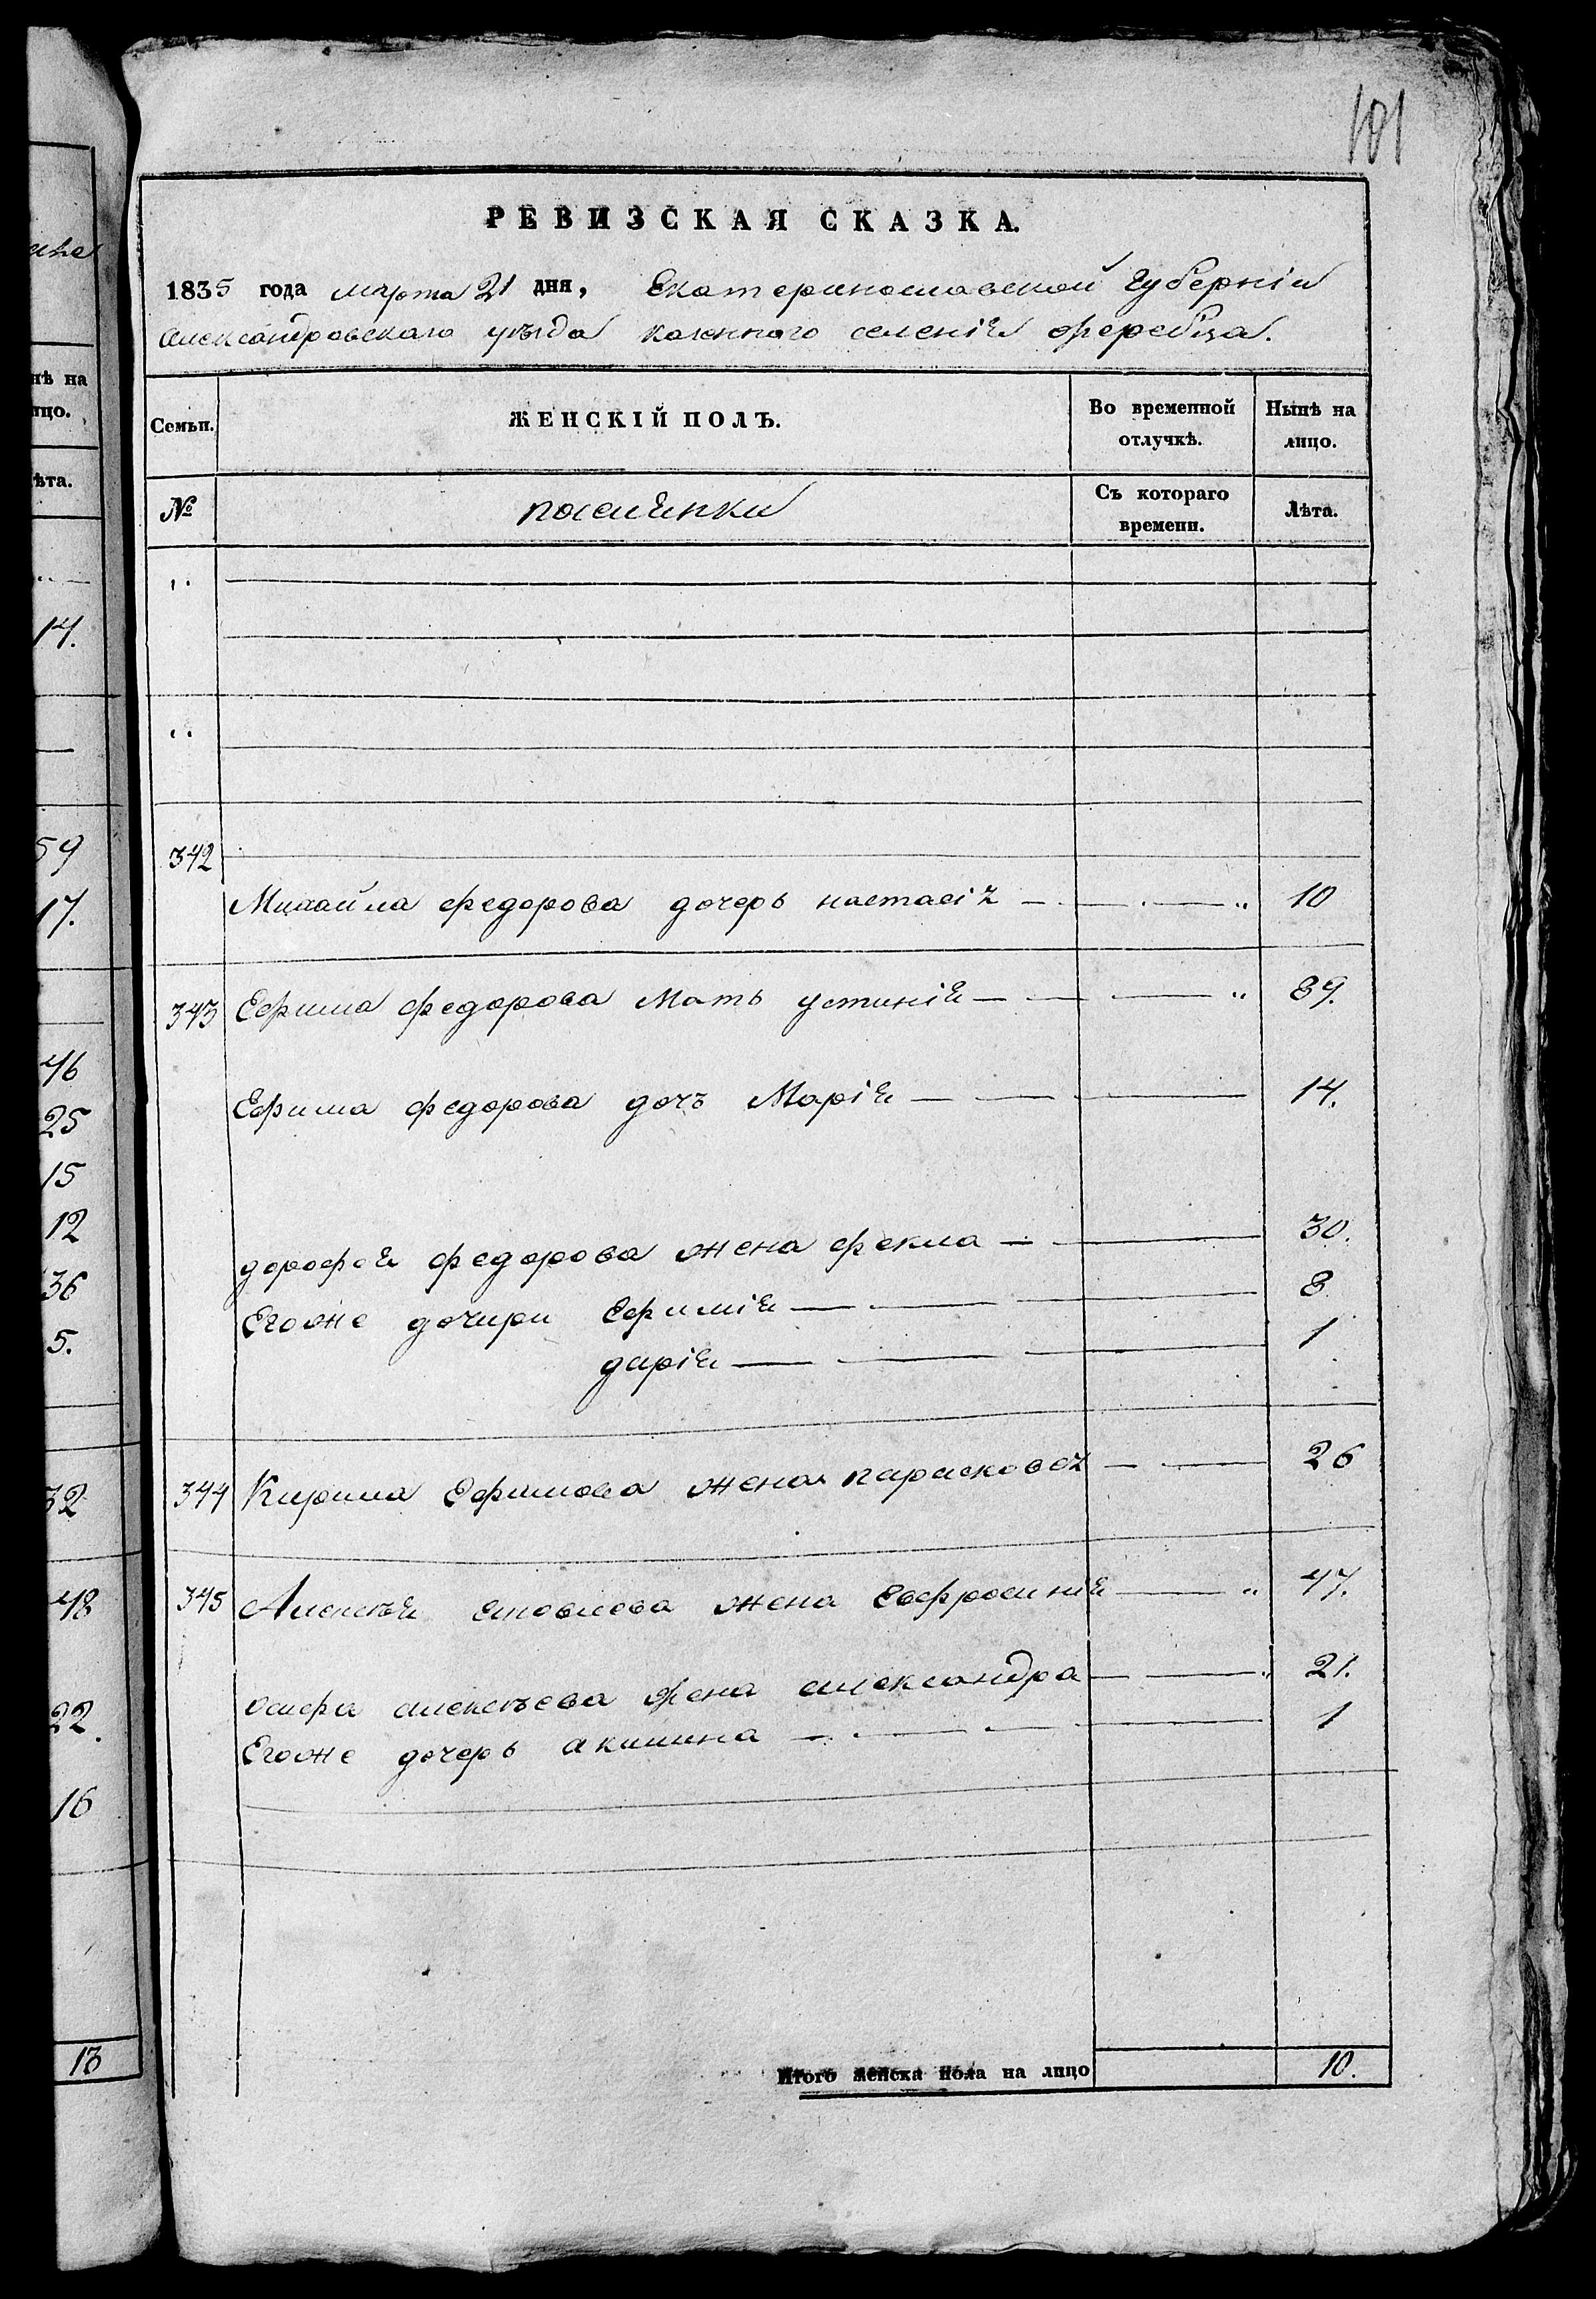 101
РЕВИЗСКАЯ СКАЗКА.
1835 года марта 21 дня, Екатеринославской Губернiи
Александровскаго уѣзда казенного селенiя Жеребца.
Семьи.
ЖЕНСКIЙ ПОЛЪ.
Во временной отлучкѣ.
Нынѣ на лицо.
№
Съ котораго времени.
Лѣта.
342
Михайла федорова дочерь настасiя 10
343 Ефима федорова Мать устинiя 89.
Ефима федорова дочь Марiя 14.
дорофея федорова жена фекла 30.
Егоже дочири Ефимiя 8
дарiя 1
344 Кирила Ефимова жена парасковея 26
345 Алексѣя яковлева жена Евфросинiя 47.
осифа алексѣева жена александра 21.
Егоже дочерь акилина 1
Итого женска пола на лицо 10.
нѣ на
ицо.
ѣта.
14.
59
17.
46
25
15
12
36
5.
32
48
22.
16
13